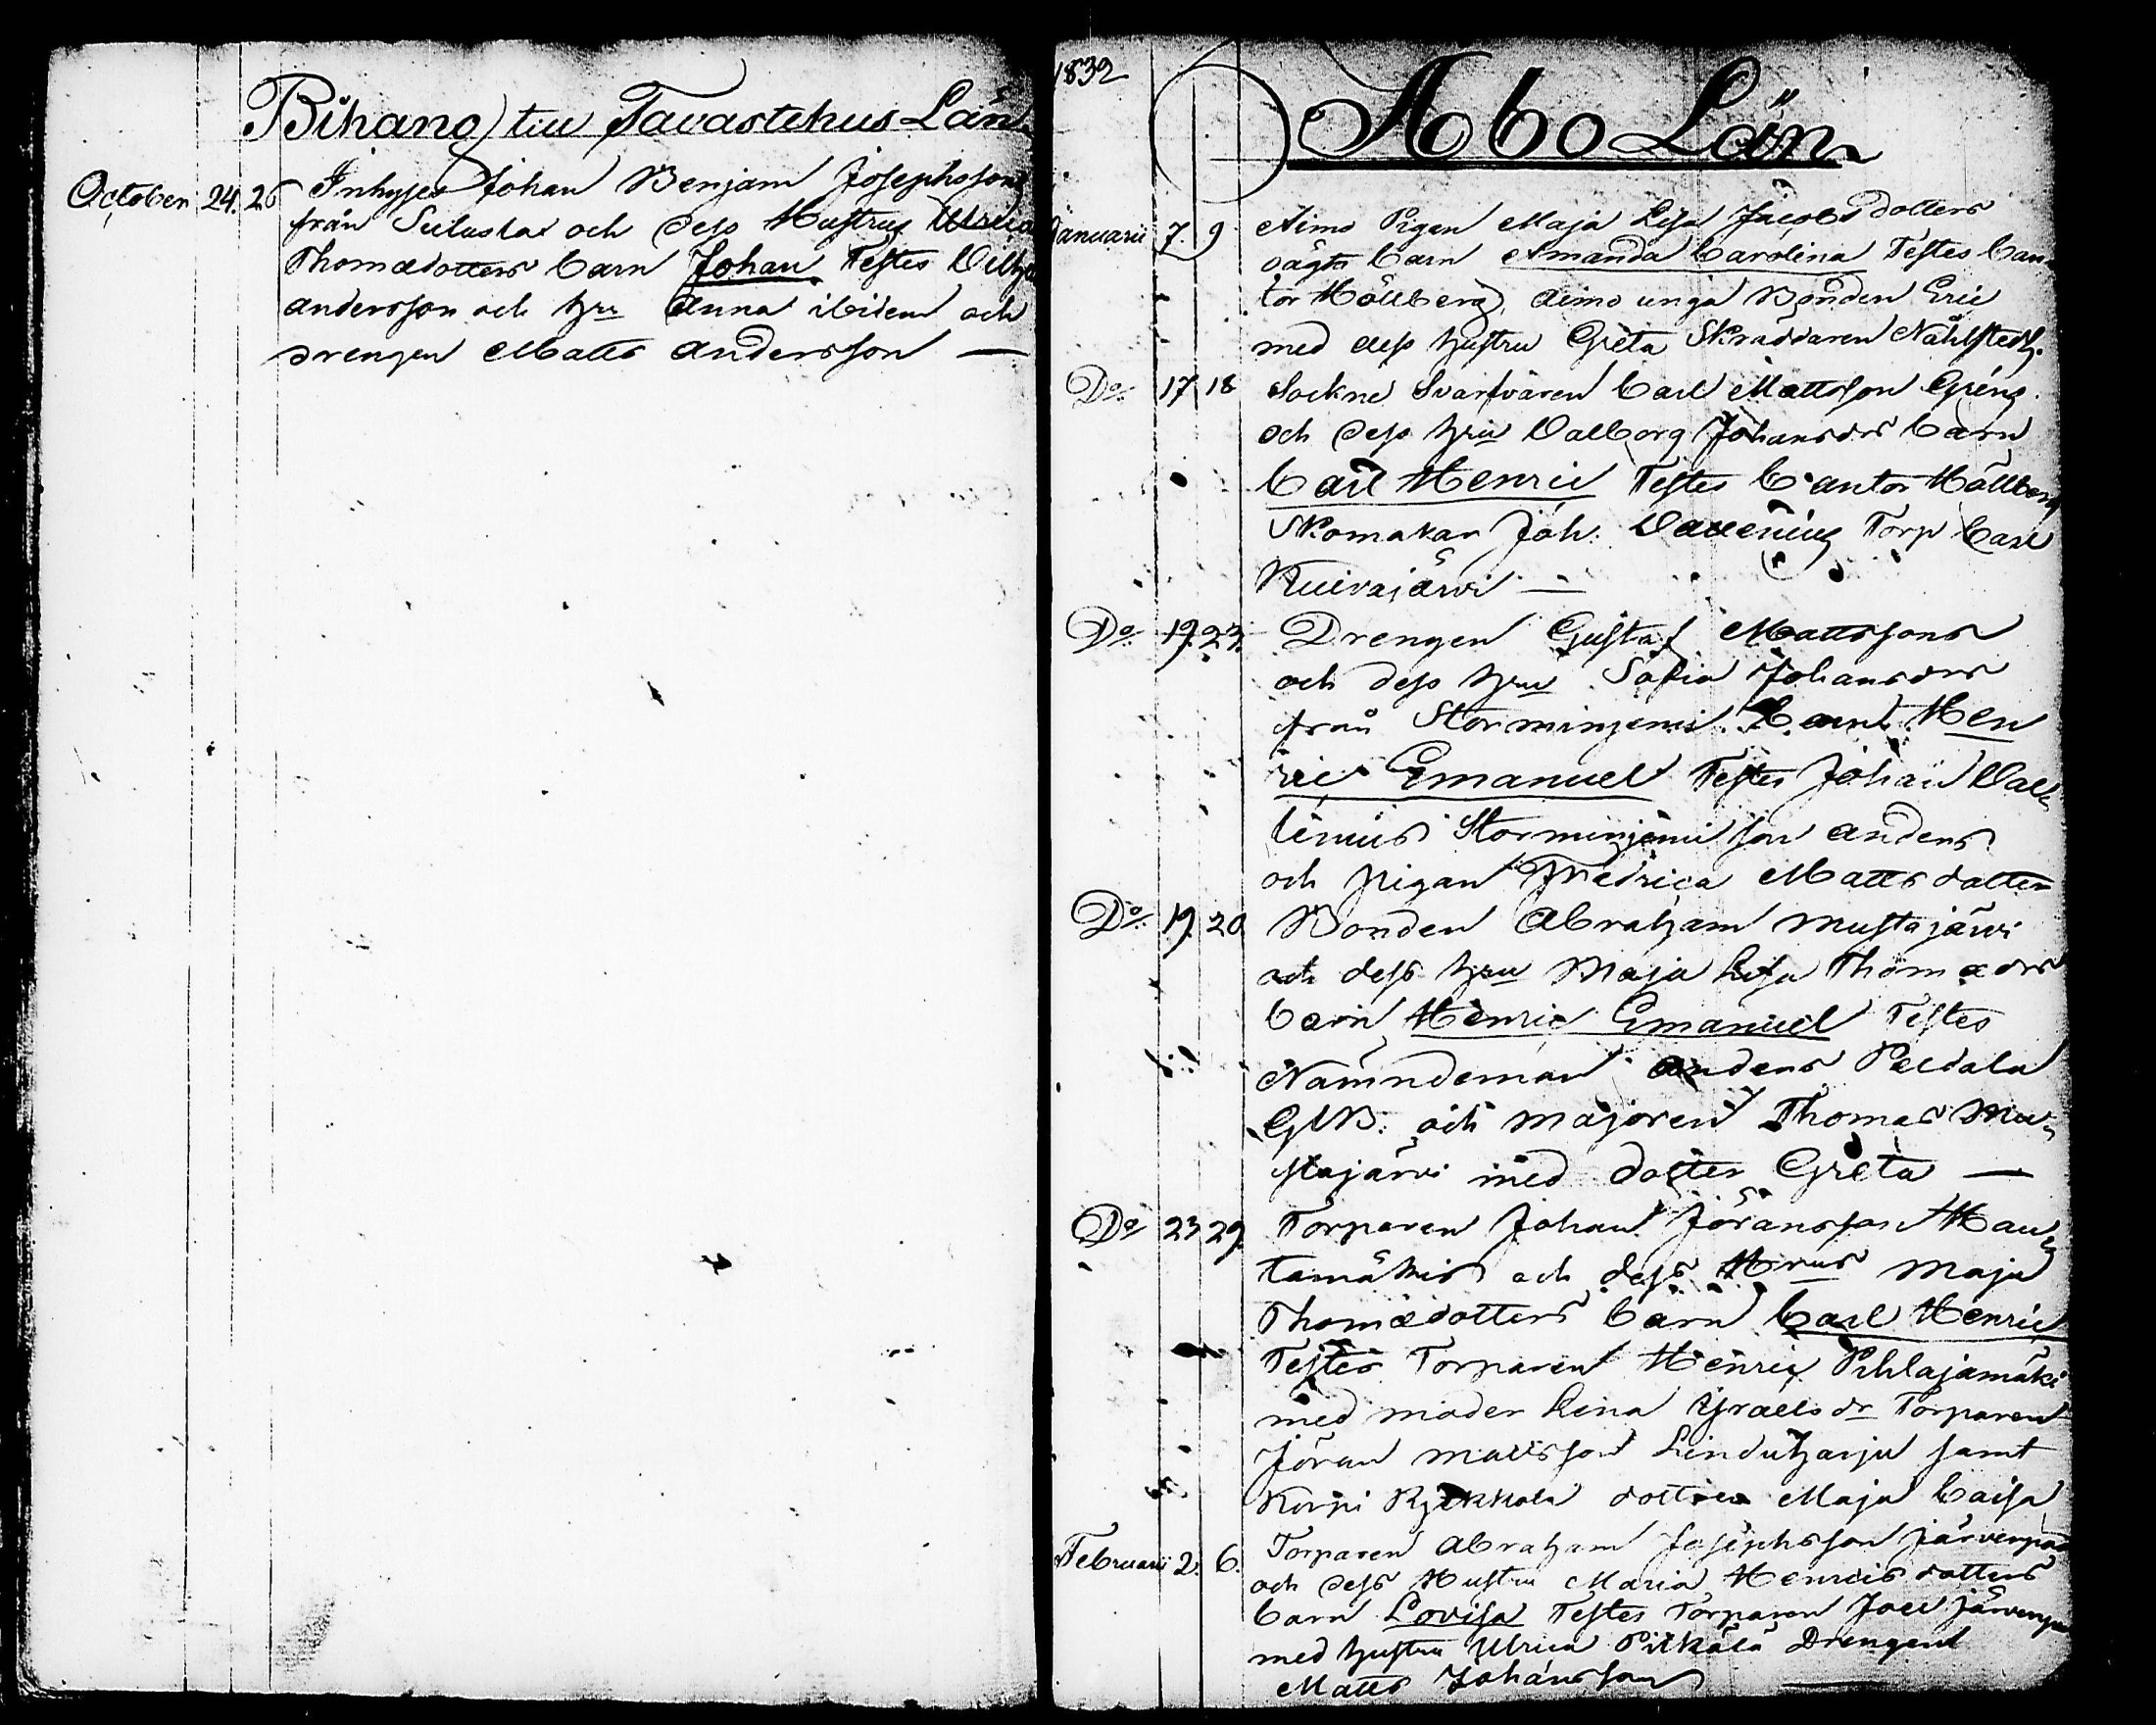 Bihang till Tavastehus Län.
October 24. 26 Inhyses Johan Benjam Josephsons
från Suilusta och dess Hustrus Ulrica
Thomædotters barn Johan Testes
andersson och hru Anna ibidem och
drengen Matts andersson —
1832
Åbo Län
Januarii 7. 9 Aimo Pigan Maja Lisa Jacobsdotters
oägta barn Amanda Carolina Testes Can
tor Hällberg, aimo unga Bonden Eric
med dess hustru Greta Skraddaren Nahlstedt.
Do 17 18 Sockne Svarfvaren Carl Mattsson Gréns
och dess hru Valborg Johansdrs barn
Carl Henric Testes Cantor Hällberg
Skomakar Joh: Vallenius Torp Carl
Kuivajärvi —
Do 19. 23. Drengen Gustaf Mattssons
och dess hru Sofia Johansdrs
från Storminjemi barn Hen
ric Emanuel Testes Johan Val
lenius Storminjemi son anders
och pigan Fredrica Matts dotter
Do 19. 20 Bonden Abraham Mustajärvi
och dess hru Maja Lisa Thomædrs
barn Henric Emanuel Testes
Nämndeman anders Peldala
GlB: och majoren Thomas Mu
stajärvi med dotter Greta —
Do 23 29. Torparen Johan Jöransson Hau
tamäkis och dess Hrus Maja
Thomædotters barn Carl Henric
Testes Torparen Henric Pihlajamäki
med moder Lena Ysraelsdr Torparen
Jöran Mattsson Linduharju samt
Korpi Rykkälä dottren Maja Caisa
Februarii 2. 6. Torparen Abraham Josephsson Järvenpää
och dess Hustru Maria Henricsdotters
barn Lovisa Testes Torparen Joel Järvenpää
med hustru Ulrica Pitkälä Drengen
Matts Johansson —